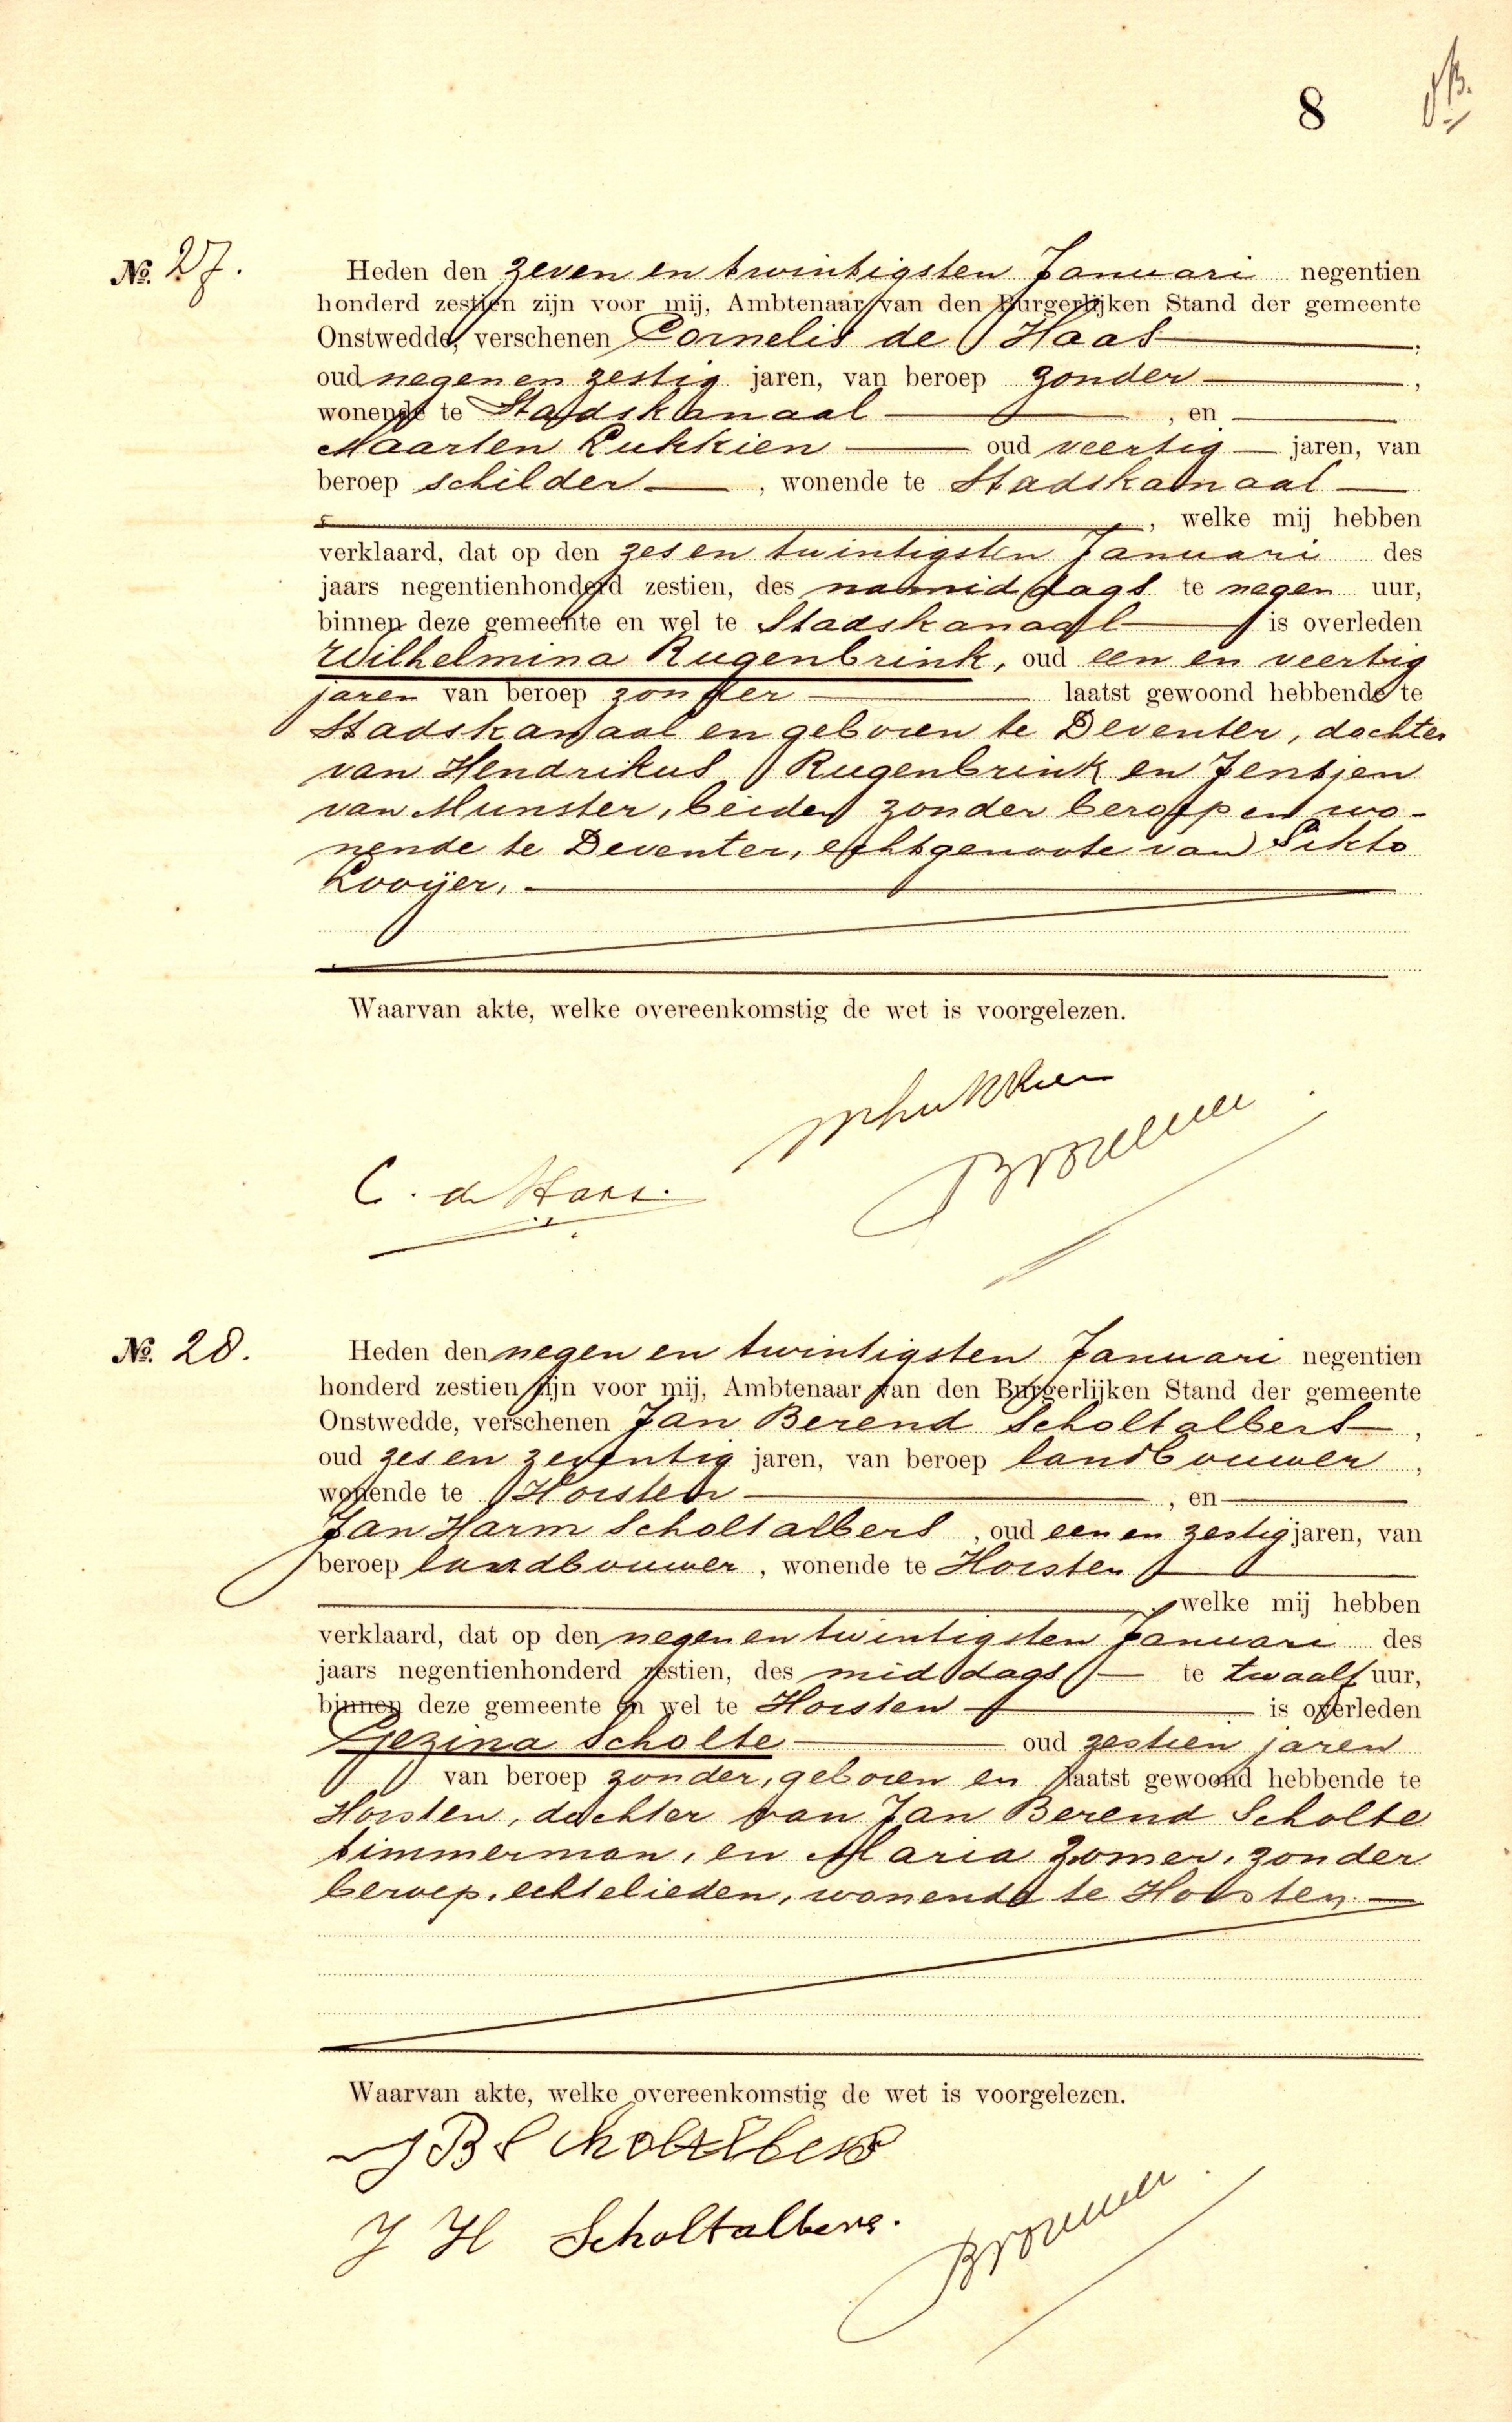 8
No. 27.
Heden den zeven en twintigsten Januari negentien
honderd zestien zijn voor mij, Ambtenaar van den Burgerlijken Stand der gemeente
Onstwedde, verschenen Cornelis de Haas
oud negen en zestig jaren, van beroep zonder,
wonende te Stadskanaal, en
Maarten Lukkien oud veertig jaren, van
beroep schilder, wonende te Stadskanaal
, welke mij hebben
verklaard, dat op den zes en twintigsten Januari des
jaars negentienhonderd zestien, des namiddags te negen uur,
binnen deze gemeente en wel te Stadskanaal is overleden
Wilhelmina Rugenbrink, oud een en veertig
jaren van beroep zonder laatst gewoond hebbende te
Stadskanaal en geboren te Deventer, dochter
van Hendrikus Rugenbrink en Jentjen
van Munster, beiden zonder beroep en wo-
nende te Deventer, echtgenoote van Sikko
Kooijer.
Waarvan akte, welke overeenkomstig de wet is voorgelezen.
MLukkien
C. de Haas.
No. 28.
Heden den negen en twintigsten Januari negentien
honderd zestien zijn voor mij, Ambtenaar van den Burgerlijken Stand der gemeente
Onstwedde, verschenen Jan Berend Scholtalbers,
oud zes en zeventig jaren, van beroep landbouwer,
wonende te Horsten, en
Jan Harm Scholtalbers, oud een en zestig jaren, van
beroep landbouwer, wonende te Horsten
, welke mij hebben
verklaard, dat op den negen en twintigsten Januari des
jaars negentienhonderd zestien, des middags te twaalf uur,
binnen deze gemeente en wel te Horsten is overleden
Gezina Scholte oud zestien jaren
van beroep zonder, geboren en laatst gewoond hebbende te
Horsten, dochter van Jan Berend Scholte
timmerman, en Maria Zomer, zonder
beroep, echtelieden, wonende te Horsten.
Waarvan akte, welke overeenkomstig de wet is voorgelezen.
J B Scholtalbers
J H Scholtalbers.